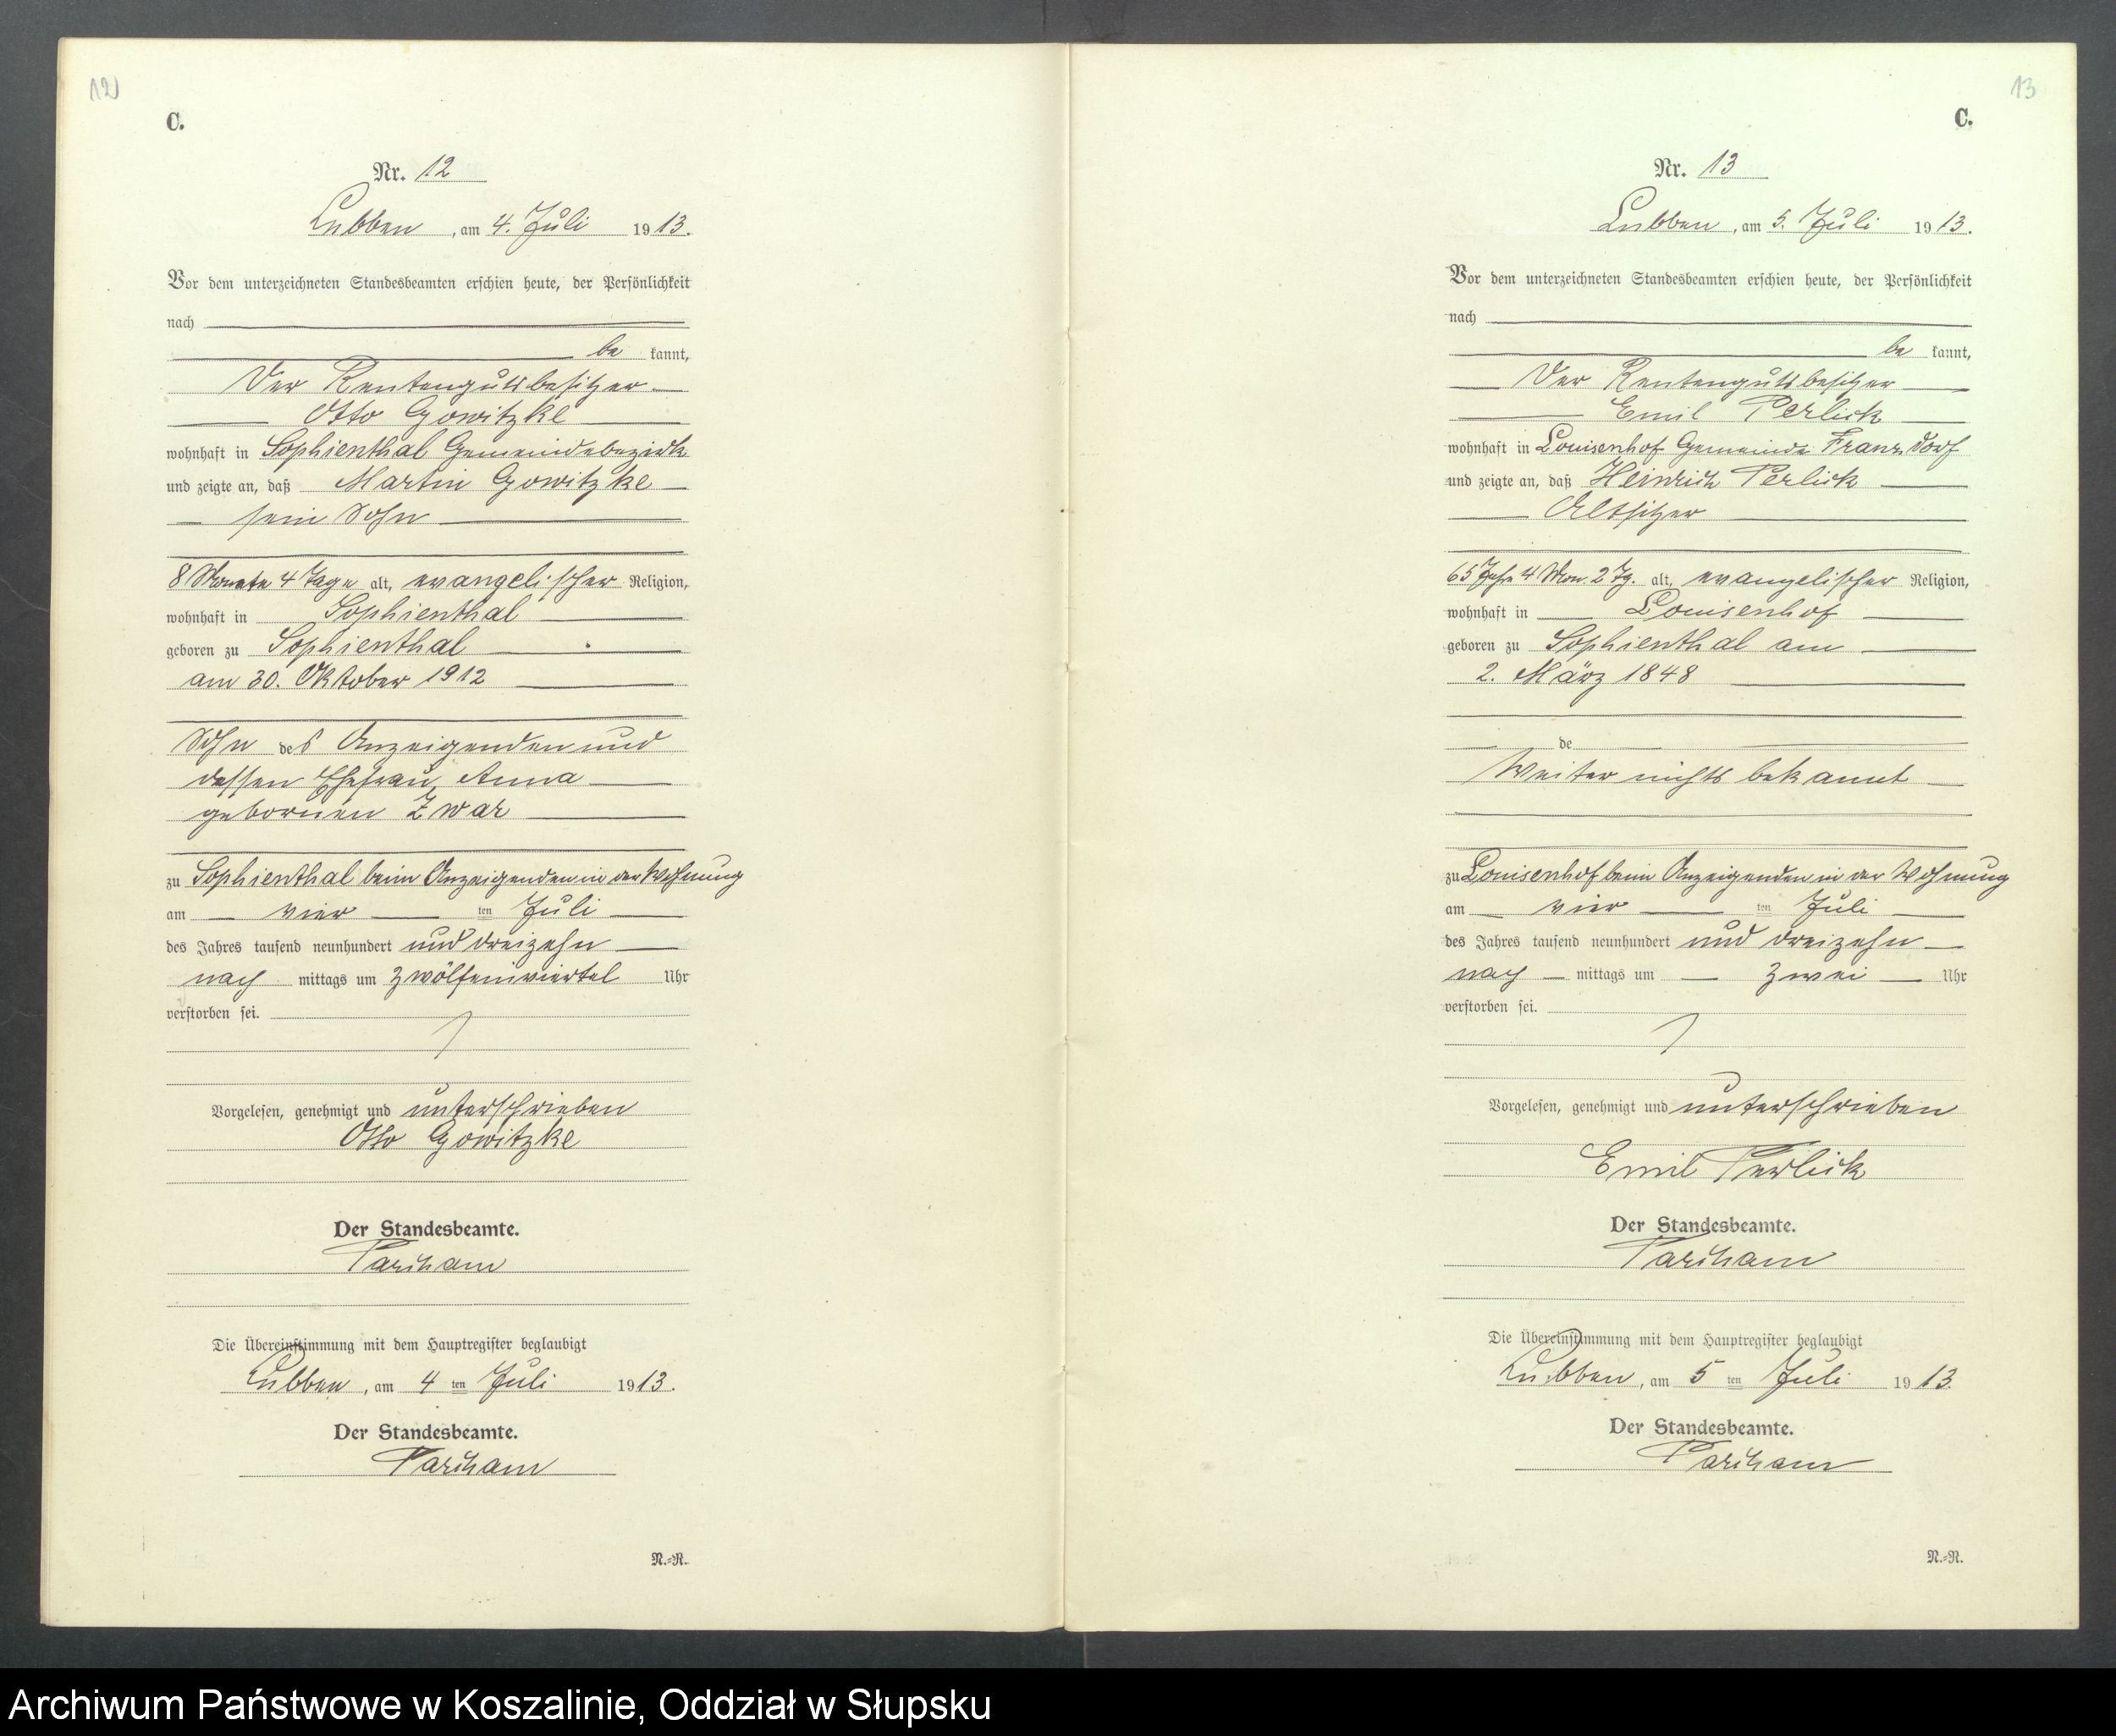 12
C.
Nr. 12
Lubben, am 4. Juli 1913.
Vor dem unterzeichneten Standesbeamten erschien heute, der Persönlichkeit
nach
be kannt,
Der Rentengutsbesitzer
Otto Gowitzke
wohnhaft in Sophienthal Gemeindebezirk
und zeigte an, daß Martin Gowitzke
sein Sohn
8 Monate 4 Tage alt, evangelischer Religion,
wohnhaft in Sophienthal
geboren zu Sophienthal
am 30. Oktober 1912
Sohn des Anzeigenden und
dessen Ehefrau Anna
gebornen Zwar
zu Sophienthal beim Anzeigenden in der Wohnung
am vier ten Juli
des Jahres tausend neunhundert und dreizehn
nach mittags um zwölfeinviertel Uhr
verstorben sei.
Vorgelesen, genehmigt und unterschrieben
Otto Gowitzke
Der Standesbeamte.
Parcham
Die Übereinstimmung mit dem Hauptregister beglaubigt
Lubben, am 4 ten Juli 1913.
Der Standesbeamte.
Parcham
N.=R.
13
C.
Nr. 13
Lubben, am 5. Juli 1913.
Vor dem unterzeichneten Standesbeamten erschien heute, der Persönlichkeit
nach
be kannt,
Der Rentengutsbesitzer
Emil Perlick
wohnhaft in Louisenhof Gemeinde Franzdorf
und zeigte an, daß Heinrich Perlick
Altsitzer
65 Jahr 4 Mon. 2 Tg. alt, evangelischer Religion,
wohnhaft in Louisenhof
geboren zu Sophienthal am
2. März 1848
de
Weiter nichts bekannt
zu Louisenhof beim Anzeigenden in der Wohnung
am vier ten Juli
des Jahres tausend neunhundert und dreizehn
nach mittags um zwei Uhr
verstorben sei.
Vorgelesen, genehmigt und unterschrieben
Emil Perlick
Der Standesbeamte.
Parcham
Die Übereinstimmung mit dem Hauptregister beglaubigt
Lubben, am 5 ten Juli 1913.
Der Standesbeamte.
Parcham
N.=R.
Archiwum Państwowe w Koszalinie, Oddział w Słupsku